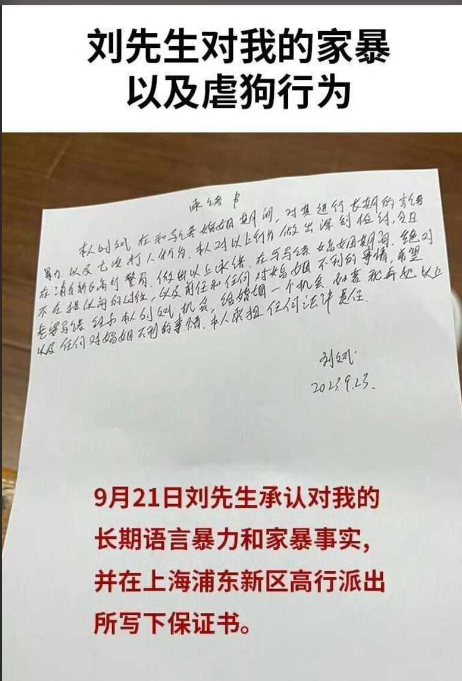 刘先生对我的家暴
以及虐狗行为
承诺书
本人刘 在和 婚姻期间,对其进行长期的言语
暴力 以及 次打人行为.本人对以上行为做出深刻检讨,今日
在浦东新区高行警局,作出以上承诺.在与 婚姻期间,绝对
不在提以前的过往,以及前任和任何对婚姻不利的事情,希望
老婆 给本人刘 机会,给婚姻一个机会,如若我再犯以上
以及任何对婚姻不利的事情,本人承担任何法律责任.
刘
2023.9.23.
9月21日刘先生承认对我的
长期语言暴力和家暴事实,
并在上海浦东新区高行派出
所写下保证书。